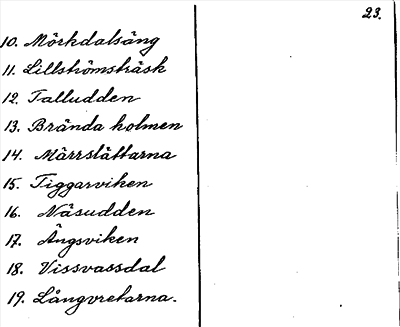 23.
10. Mörkdalsäng
11. Lillströmsträsk
12. Talludden
13. Brända holmen
14. Märrslättarna
15. Tiggarviken
16. Näsudden
17. Ängsviken
18. Vissvassdal
19. Långvretarna.